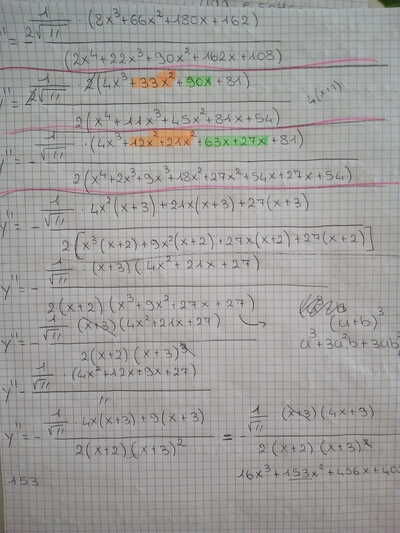 y'' = 1/(2√11) · (8x³+66x²+180x+162)
(2x⁴+22x³+90x²+162x+108)
y'' = 1/(2√11) · 2(4x³+33x²+90x+81)
2(x⁴+11x³+45x²+81x+54)
y'' = - 1/√11 · (4x³+12x²+21x²+63x+27x+81)
2(x⁴+2x³+9x³+18x²+27x²+54x+27x+54)
y'' = - 1/√11 · 4x²(x+3)+21x(x+3)+27(x+3)
2[x³(x+2)+9x²(x+2)+27x(x+2)+27(x+2)]
y'' = - 1/√11 · (x+3)(4x²+21x+27)
2(x+2)(x³+9x²+27x+27)
y'' = - 1/√11 (x+3)(4x²+21x+27)
2(x+2)(x+3)³
(a+b)³
a³+3a²b+3ab²
y'' - 1/√11 · (4x²+12x+9x+27)
"
y'' = - 1/√11 · 4x(x+3)+9(x+3) = - 1/√11 · (x+3)(4x+9)
2(x+2)(x+3)² 2(x+2)(x+3)²
16x³+153x²+456x+40
153